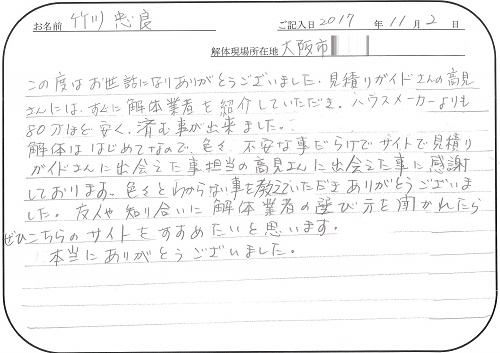 お名前 竹川 忠良 ご記入日 2017 年 11 月 2 日
解体現場所在地 大阪市
この度はお世話になりありがとうございました。見積りガイドさんの高見
さんには、すぐに解体業者を紹介していただき。ハウスメーカーよりも
80万ほど安く、済む事が出来ました。
解体は はじめてなので、色々、不安な事だらけでサイトで見積り
ガイドさんに出会えた事担当の高見さんに出会えた事に感謝
しております。色々とわからない事を教えていただきありがとうございま
した。友人や知り合いに解体業者の選び方を聞かれたら
ぜひこちらのサイトをすすめたいと思います。
本当にありがとうございました。